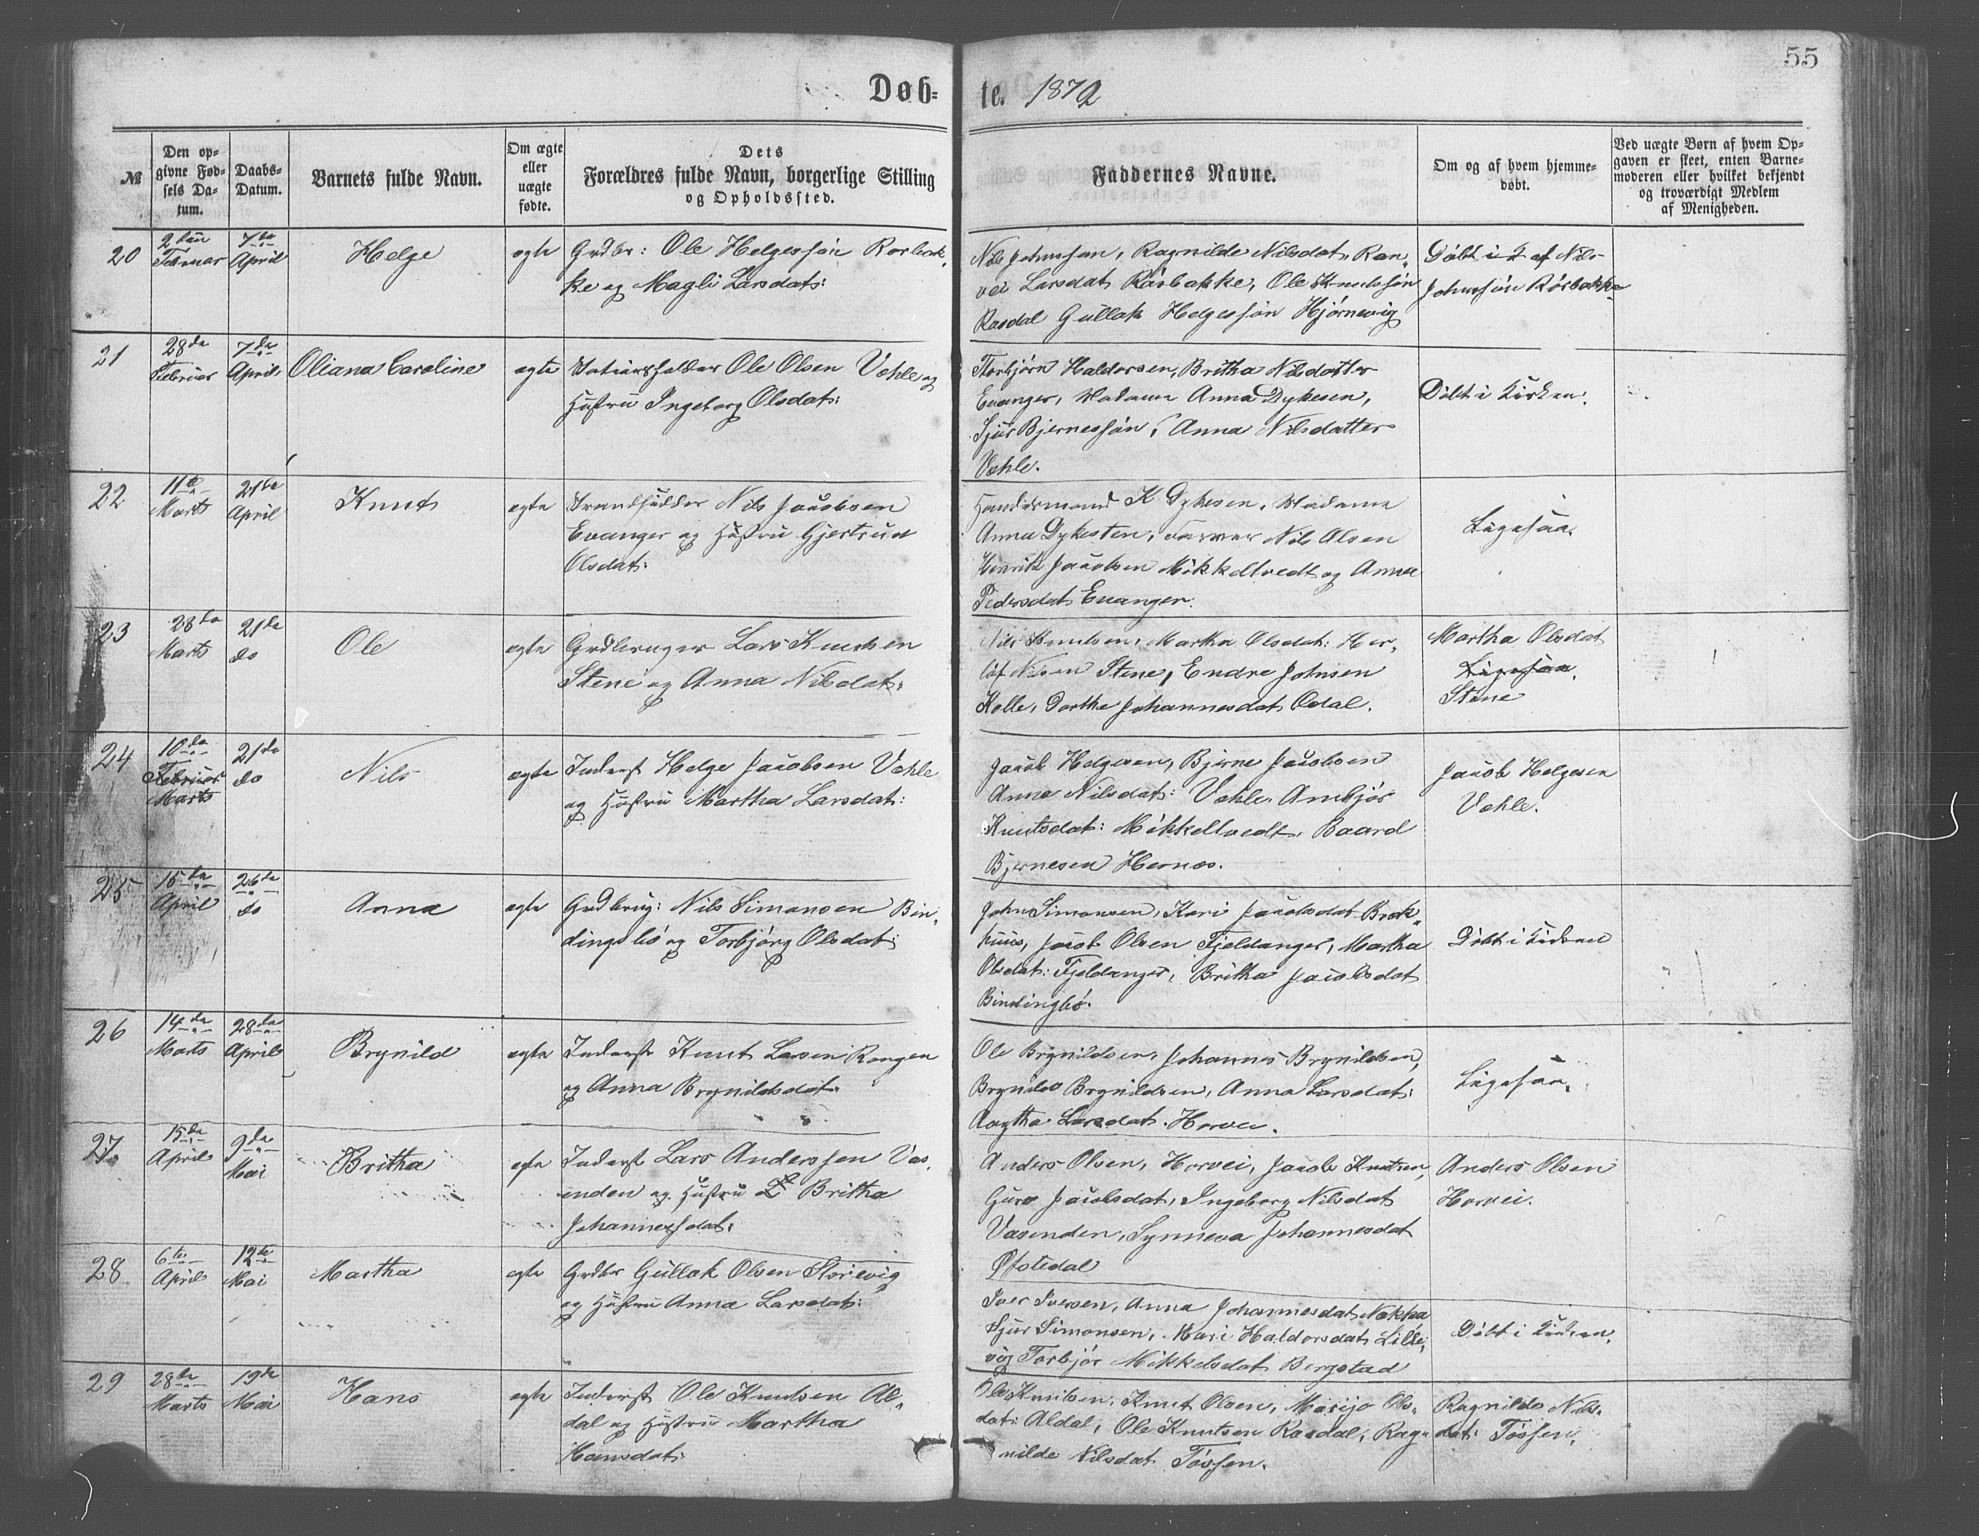 55
Døb-
te. 1872
№
Den op-
givne Fød-
sels Da-
tum.
Daabs-
Datum.
Barnets fulde Navn.
Om ægte
eller
uægte
fødte.
Dets
Forældres fulde Navn, borgerlige Stilling
og Opholdssted.
Faddernes Navne.
Om og af hvem hjemme-
døbt.
Ved uægte Børn af hvem Op-
gaven er skeet, enten Barne-
moderen eller hvilket bekjendt
og troværdigt Medlem
af Menigheden.
20
2den
Februar
7de
April
Helge
ægte
Grdbr: Ole Helgessøn Rorbak-
ke og Magli Larsdat:
Nils Johnssøn, Ragnilde Nilsdat, Ran-
vei Larsdat Rørbakke, Ole Knudssøn
Rasdal Gullak Helgessøn Hjørnevig
Døbt i K af Nils
Johnssøn Rørbakke
21
28da
Februar
7de
April
Oliana Caroline
ægte
Ole Olsen Væhle og
Hustru Ingeborg Olsdat:
Torbjørn Haldorsen, Britha Nilsdatter
Evanger, Madame Anna Dykesen,
Sjur Bjernessøn, Anna Nilsdatter
Væhle.
Døbt i Kirken.
22
11te
Marts
21de
April
Knut
ægte
Strandsidder Nils Jacobsen
Evanger og Hustru Gjertrud
Olsdat:
Handelsmand K. Dykesen, Madame
Anna Dykesten, Nils Olsen
Henrik Jacobsen Mikkeltvedt og Anna
Pedersdat Evanger.
Ligesaa.
23
28da
Marts
21de
do
Ole
ægte
Grdbruger Lars Knudsen
Stene og Anna Nilsdat:
Nils Knudsen, Martha Olsdat: Her-
lof Nilsen Stene, Endre Johnsen
Kolle, Dorthe Johannesdat Odal.
Martha Olsdat
Ligesaa.
Stene
24
10da
Februar
Marts
21de
do
Nils
ægte
Inderst Helge Jacobsen Væhle
og Hustru Martha Larsdat:
Jacob Helgesen, Bjerne Jacobsen
Anna Nilsdat: Væhle, Ambjør
Knutsdat: Mikkeltvedt, Baard
Bjernesen Hernæs.
Jacob Helgesen
Væhle.
25
15da
April
26da
do
Anna
ægte
Grdbrug: Nils Simonsen Bin-
dingsbø og Torbjørg Olsdat:
John Simonsen, Kari Jacobsdat Brek-
huus, Jacob Olsen Fjeldanger, Martha
Olsdat: Fjeldanger, Britha Jacobsdat
Bindingbø.
Døbt i Kirken
26
14da
Marts
28da
April
Brynild
ægte
Inderst Knut Larsen Rongen
og Anna Brynildsdat:
Ole Brynildsen, Johannes Brynildsen,
Brynild Brynildsen, Anna Larsdat:
Aagtha Larsdat. Horvei.
Ligesaa.
27.
15da
April
9da
Mai
Britha
ægte
Inderst Lars Anderssen Vas-
enden og Hustru Britha
Johannesdat.
Anders Olsen, Horvei, Jacob Knutsen,
Guro Jacobsdat, Ingeborg Nilsdat
Vasenden, Synneva Johannesdat
Øfstedal
Anders Olsen
Horvei.
28
6te
April
12te
Mai
Martha
ægte
Grdbr Gullak Olsen Storevig
og Hustru Anna Larsdat:
Iver Iversen, Anna Johannesdat Nækka
Sjur Simonsen, Mari Haldorsdat Lille-
vig Torbjør Mikkelsdat Bergstad
Døbt i Kirken.
29
28da
Marts
19de
Mai
Hans
ægte
Inderst Ole Knudsen Al-
dal og Hustru Martha
Hansdat:
Ole Knudsen, Knut Olsen, Marijo Ols-
dat: Aldal, Ole Knutsen Rasdal, Rag-
nilde Nilsdat Tøssen.
Ragnilde Nils-
dat: Tøssen.